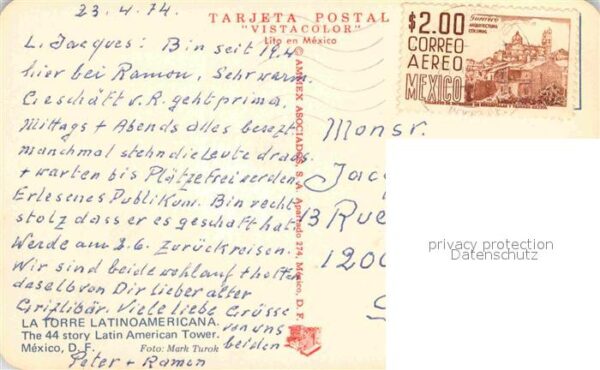 23.4.74.
TARJETA POSTAL
"VISTACOLOR"
Lito en México
L. Jacques: Bin seit 19.4
hier bei Ramon, Sehr warm.
Geschäft v. R. geht prima.
Mittags + Abends alles besezt.
manchmal stehn die Leute draus
+ warten bis Plätze frei werden.
Erlesenes Publikum. Bin recht
stolz dass er es geschaft hat
Werde am 2.6. zurückreisen.
Wir sind beide wohlauf + hoffen
daselb von Dir lieber alter
Grizlibär. Viele liebe Grüsse
von uns
beiden
Peter + Ramon
LA TORRE LATINOAMERICANA.
The 44 story Latin American Tower.
México, D. F. Foto: Mark Turok
© AMMEX ASOCIADOS, S. A. Apartado 274, México, D. F.
$2.00
CORREO
AEREO
MEXICO
Guerrero
ARQUITECTURA
COLONIAL
Monsr.
Jac
13 Rue
120
privacy protection
Datenschutz